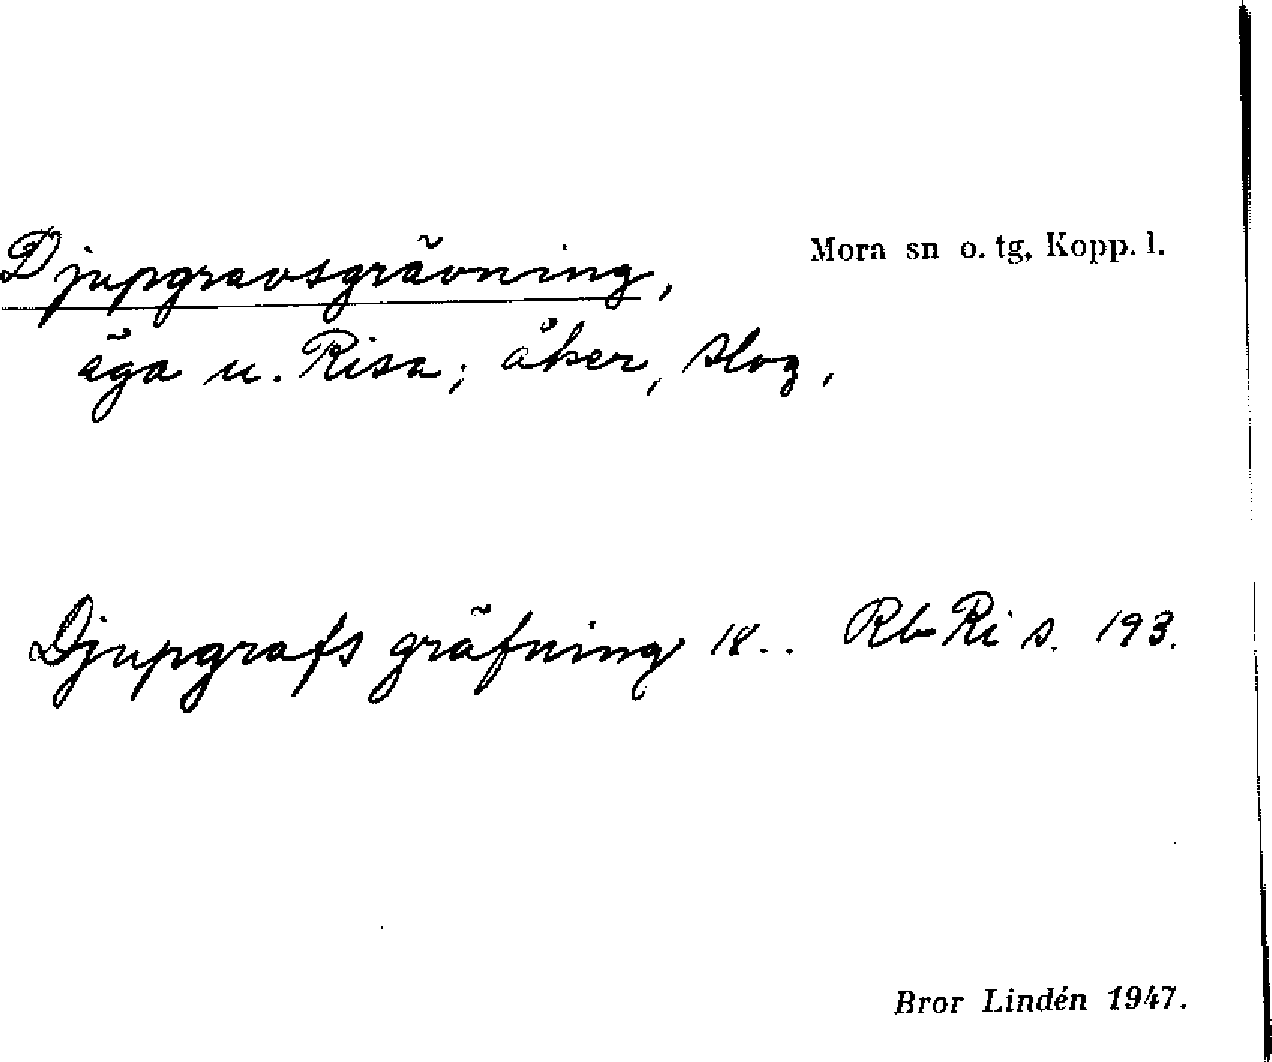 Djupgravsgrävning,
Mora sn o. tg, Kopp. l.
äga u. Risa; åker, slog,
Djupgrafs gräfning 18.. Rb Ri s. 193.
Bror Lindén 1947.